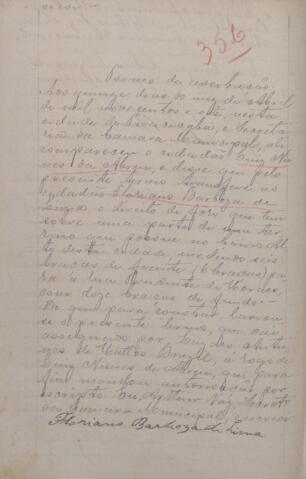 356
Termo de averbação
Aos quinze dias do mez de Abril
de mil novecentos e oito, nesta
cidade de Piracicaba, e Secreta-
ria da Camara Municipal, ahi
compareceu o cidadão Luiz Nu-
nes de Abreu, e disse que pelo
presente termo transfere ao
cidadão Floriano Barboza de
Lima o direito de foro que tem
sobre uma parte de um ter-
reno que possue no bairro Alto
desta cidade, medindo seis
braças de frente (6 braças) pa-
ra a Rua Prudente de Moraes,
com doze braças de fundo.
De que para constar lavrou-
se o presente termo, que vai
assignado por
de Mattos Brazil, a rogo de
Luiz Nunes de Abreu, que para
fim mandou autorisação por
escripto. Eu, Arthur Vaz, Secreta-
rio da Camara Municipal, escrevi
Floriano Barboza de Lima